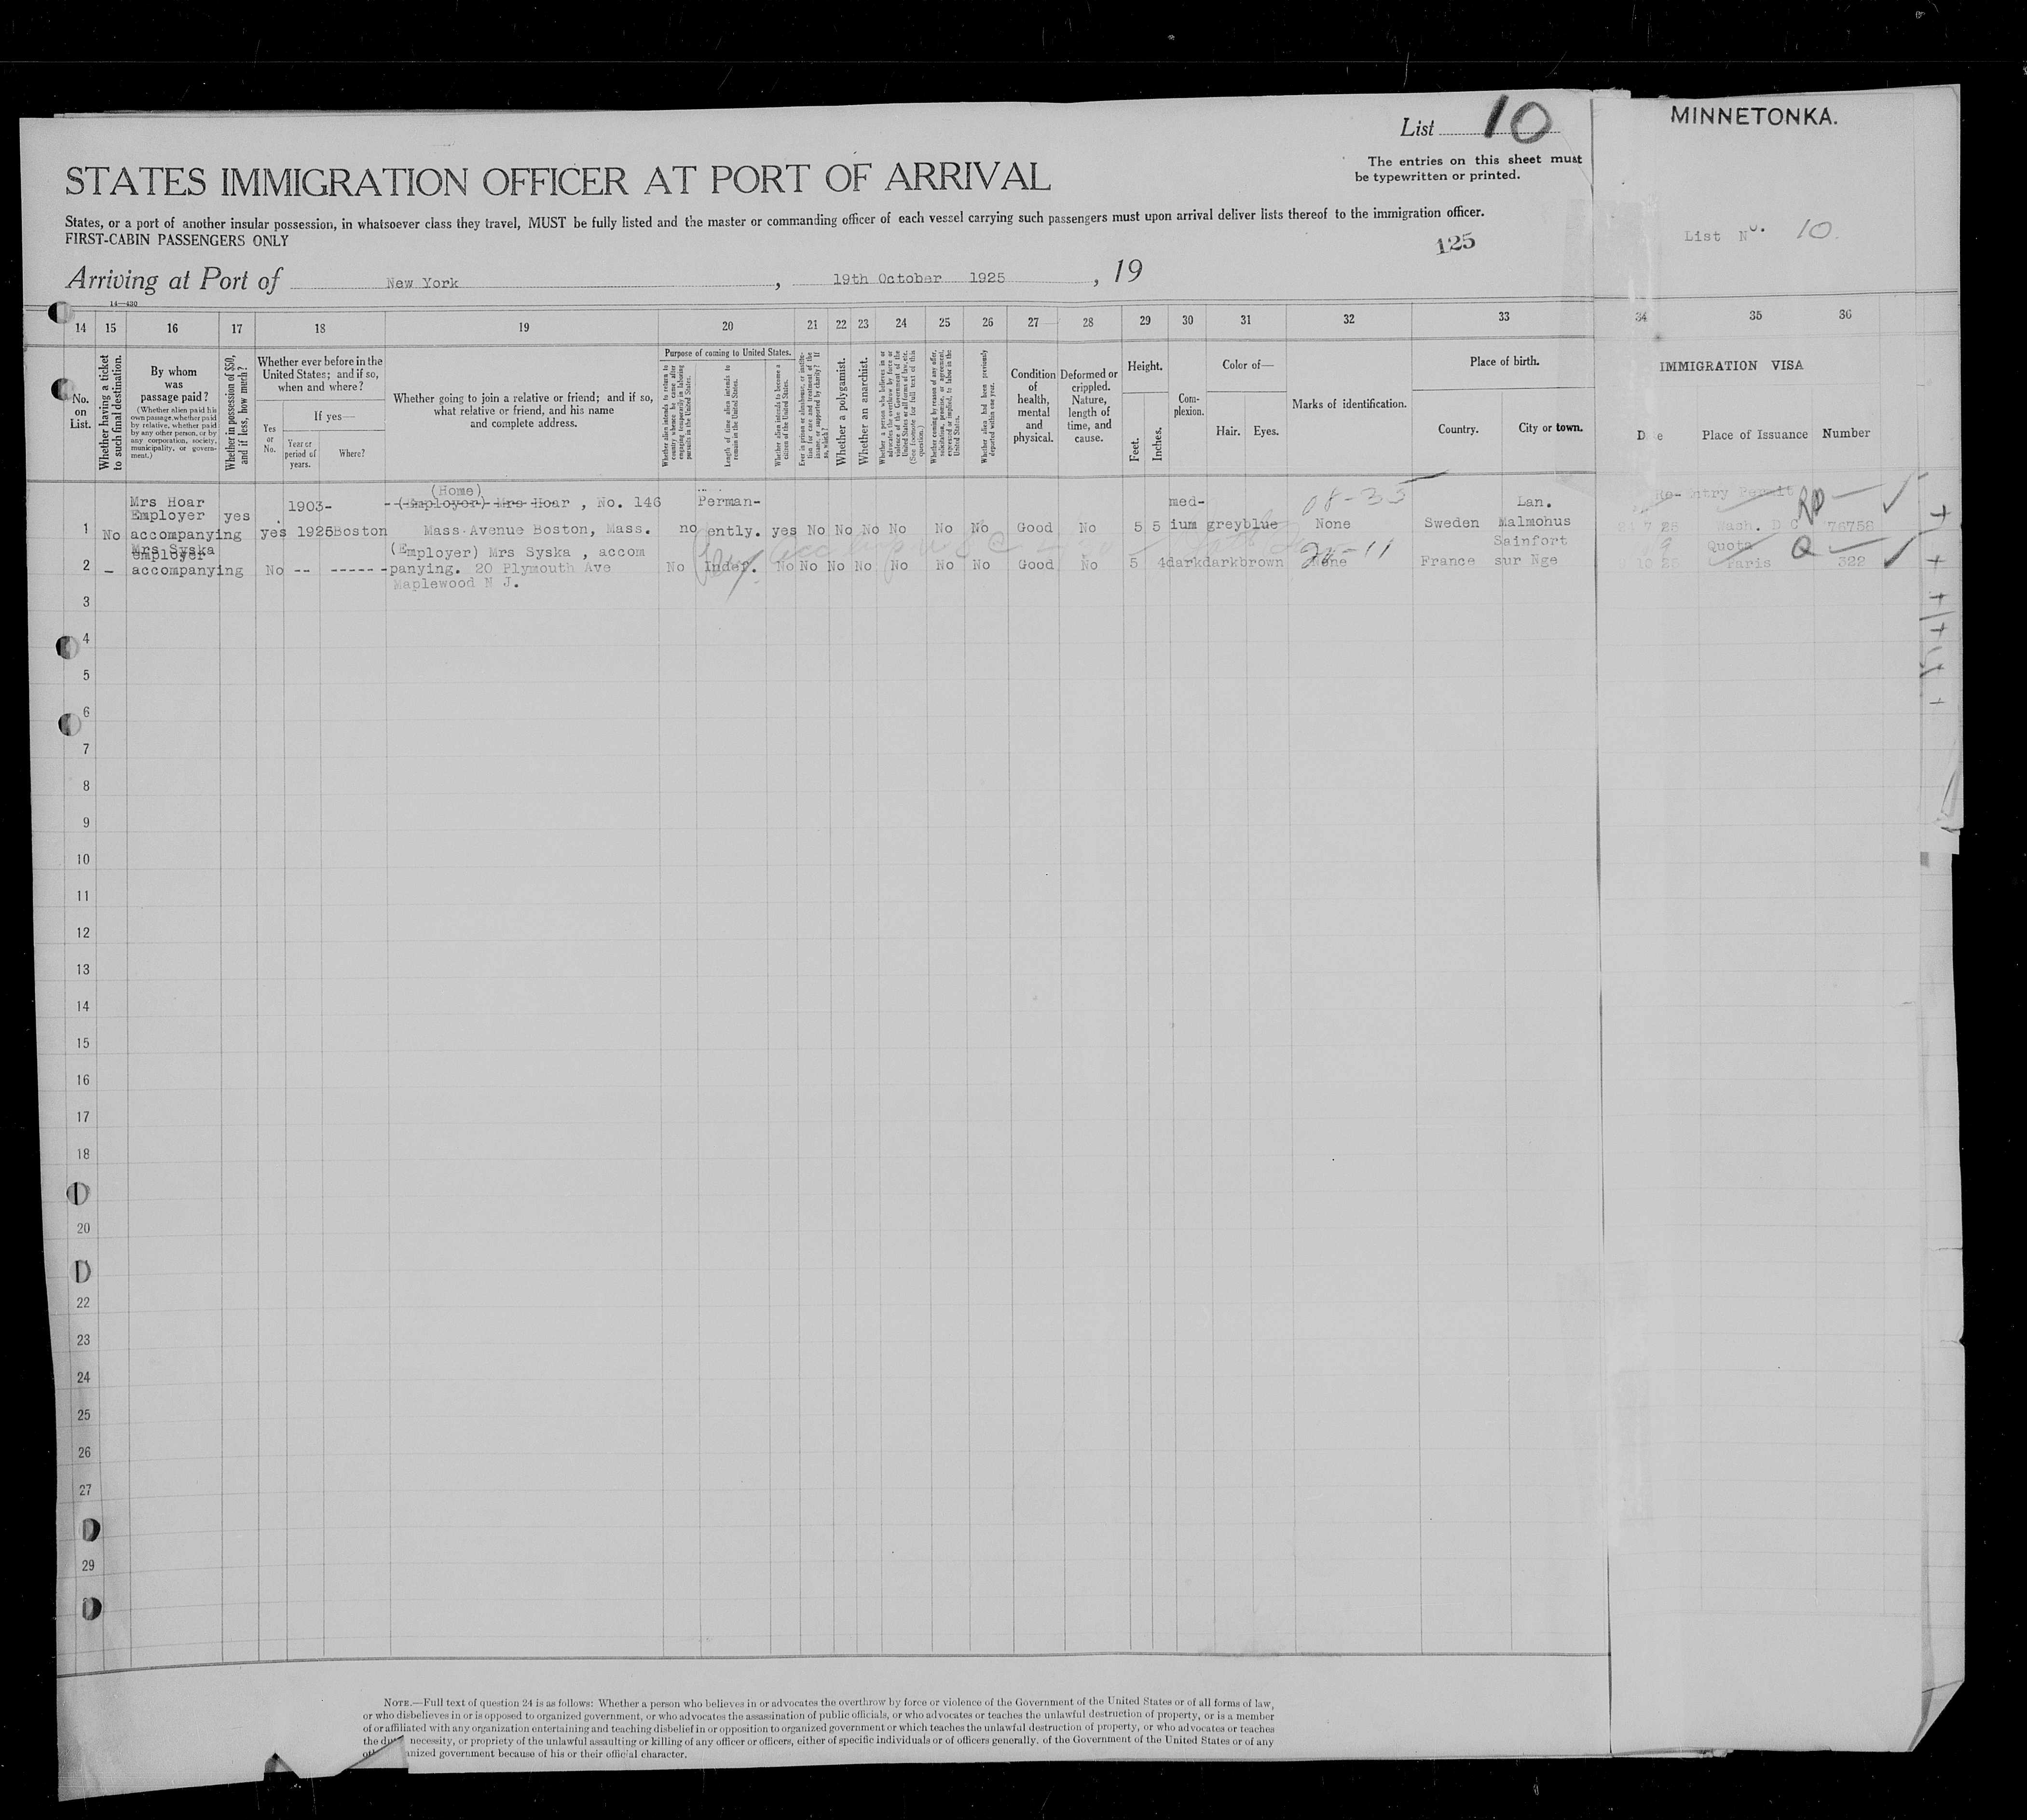 List 10
MINNETONKA.
The entries on this sheet must
be typewritten or printed.
STATES IMMIGRATION OFFICER AT PORT OF ARRIVAL
States, or a port of another insular possession, in whatsoever class they travel, MUST be fully listed and the master or commanding officer of each vessel carrying such passengers must upon arrival deliver lists thereof to the immigration officer.
FIRST-CABIN PASSENGERS ONLY
125
List No. 10.
Arriving at Port of New York, 19th October 1925, 19
14—430
14 15 16 17 18 19 20 21 22 23 24 25 26 27 28 29 30 31 32 33 34 35 36
No. on List.
Whether having a ticket to such final destination.
By whom was passage paid?
(Whether alien paid his own passage, whether paid by relative, whether paid by any other person, or by any corporation, society, municipality, or government.)
Whether in possession of $50, and if less, how much?
Whether ever before in the United States; and if so, when and where?
Yes or No.
If yes—
Year or period of years.
Where?
Whether going to join a relative or friend; and if so, what relative or friend, and his name and complete address.
Purpose of coming to United States.
Whether alien intends to return to country whence he came after engaging temporarily in laboring pursuits in the United States.
Length of time alien intends to remain in the United States.
Whether alien intends to become a citizen of the United States.
Ever in prison or almshouse, or institution for care and treatment of the insane, or supported by charity? If so, which?
Whether a polygamist.
Whether an anarchist.
Whether a person who believes in or advocates the overthrow by force or violence of the Government of the United States or all forms of law, etc. (See footnote for full text of this question.)
Whether coming by reason of any offer, solicitation, promise, or agreement, expressed or implied, to labor in the United States.
Whether alien had been previously deported within one year.
Condition of health, mental and physical.
Deformed or crippled. Nature, length of time, and cause.
Height.
Feet.
Inches.
Complexion.
Color of—
Hair. Eyes.
Marks of identification.
Place of birth.
Country. City or town.
IMMIGRATION VISA
D e Place of Issuance Number
1 No Mrs Hoar Employer accompanying yes yes 1903-1925 Boston (Home) (Employer) Mrs Hoar , No. 146 Mass Avenue Boston, Mass. no Permanently. yes No No No No No No Good No 5 5 medium grey blue None 08-35 Sweden Lan. Malmohus Re-Entry Permit RP Wash. D C 76758
2 - Mrs Syska Employer accompanying No -- ------ (Employer) Mrs Syska , accompanying. 20 Plymouth Ave Maplewood N J. No Indef. No No No No No No No Good No 5 4 dark dark brown None Sainfort France sur Nge Quota Q Paris 322
3
4
5
6
7
8
9
10
11
12
13
14
15
16
17
18
20
22
23
24
25
26
27
29
NOTE.—Full text of question 24 is as follows: Whether a person who believes in or advocates the overthrow by force or violence of the Government of the United States or of all forms of law,
or who disbelieves in or is opposed to organized government, or who advocates the assassination of public officials, or who advocates or teaches the unlawful destruction of property, or is a member
of or affiliated with any organization entertaining and teaching disbelief in or opposition to organized government or which teaches the unlawful destruction of property, or who advocates or teaches
the du necessity, or propriety of the unlawful assaulting or killing of any officer or officers, either of specific individuals or of officers generally, of the Government of the United States or of any
nized government because of his or their official character.